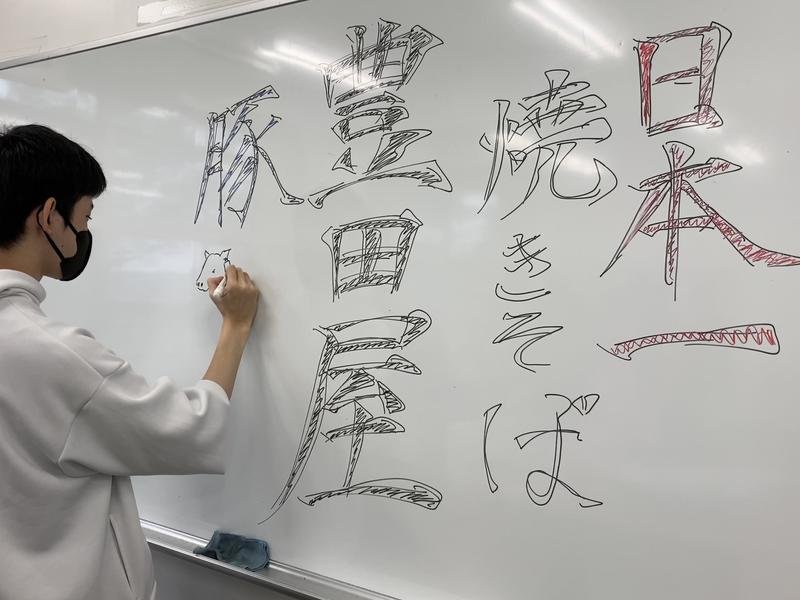 日本一
焼きそば
豊田屋
豚